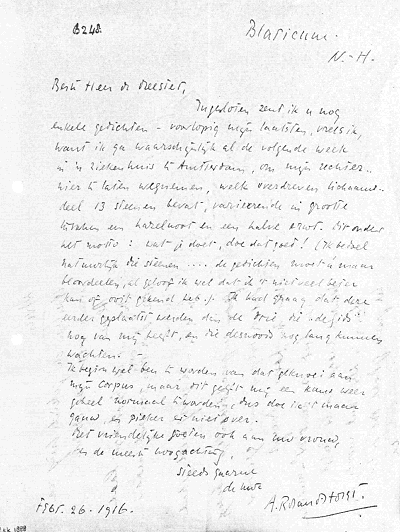 B 248.
Blaricum.
N.-H.
Beste Heer de Meester,
Ingesloten zend ik u nog
enkele gedichten – voorlopig mijn laatsten, vrees ik,
want ik ga waarschijnlijk al de volgende week
in 'n ziekenhuis te Amsterdam, om mijn rechter-
nier te laten wegnemen, welk overdreven lichaams-
deel 13 steenen bevat, varieerende in grootte
tusschen een hazelnoot en een halve erwt. Dit onder
het motto: wat je doet, doe dat goed! (Ik bedoel
natuurlijk die steenen .... de gedichten moet u maar
beoordeelen, al geloof ik wel dat ik 't niet veel beter
kan of ooit gekund heb). Ik had graag dat deze
eerder geplaatst werden dan de drie die de Gids
nog van mij heeft, en die desnoods nog lang kunnen
wachten.
Ik begin wel ben te worden van dat geknoei aan
mijn corpus, maar dit geeft mij een kans weer
geheel normaal te worden, dus doe ik 't maar
gauw, en pieker er niet over.
Met vriendelijke groeten ook aan uw vrouw,
en de meeste hoogachting,
steeds gaarne
de uwe
A. Roland Holst
Febr. 26. 1916.